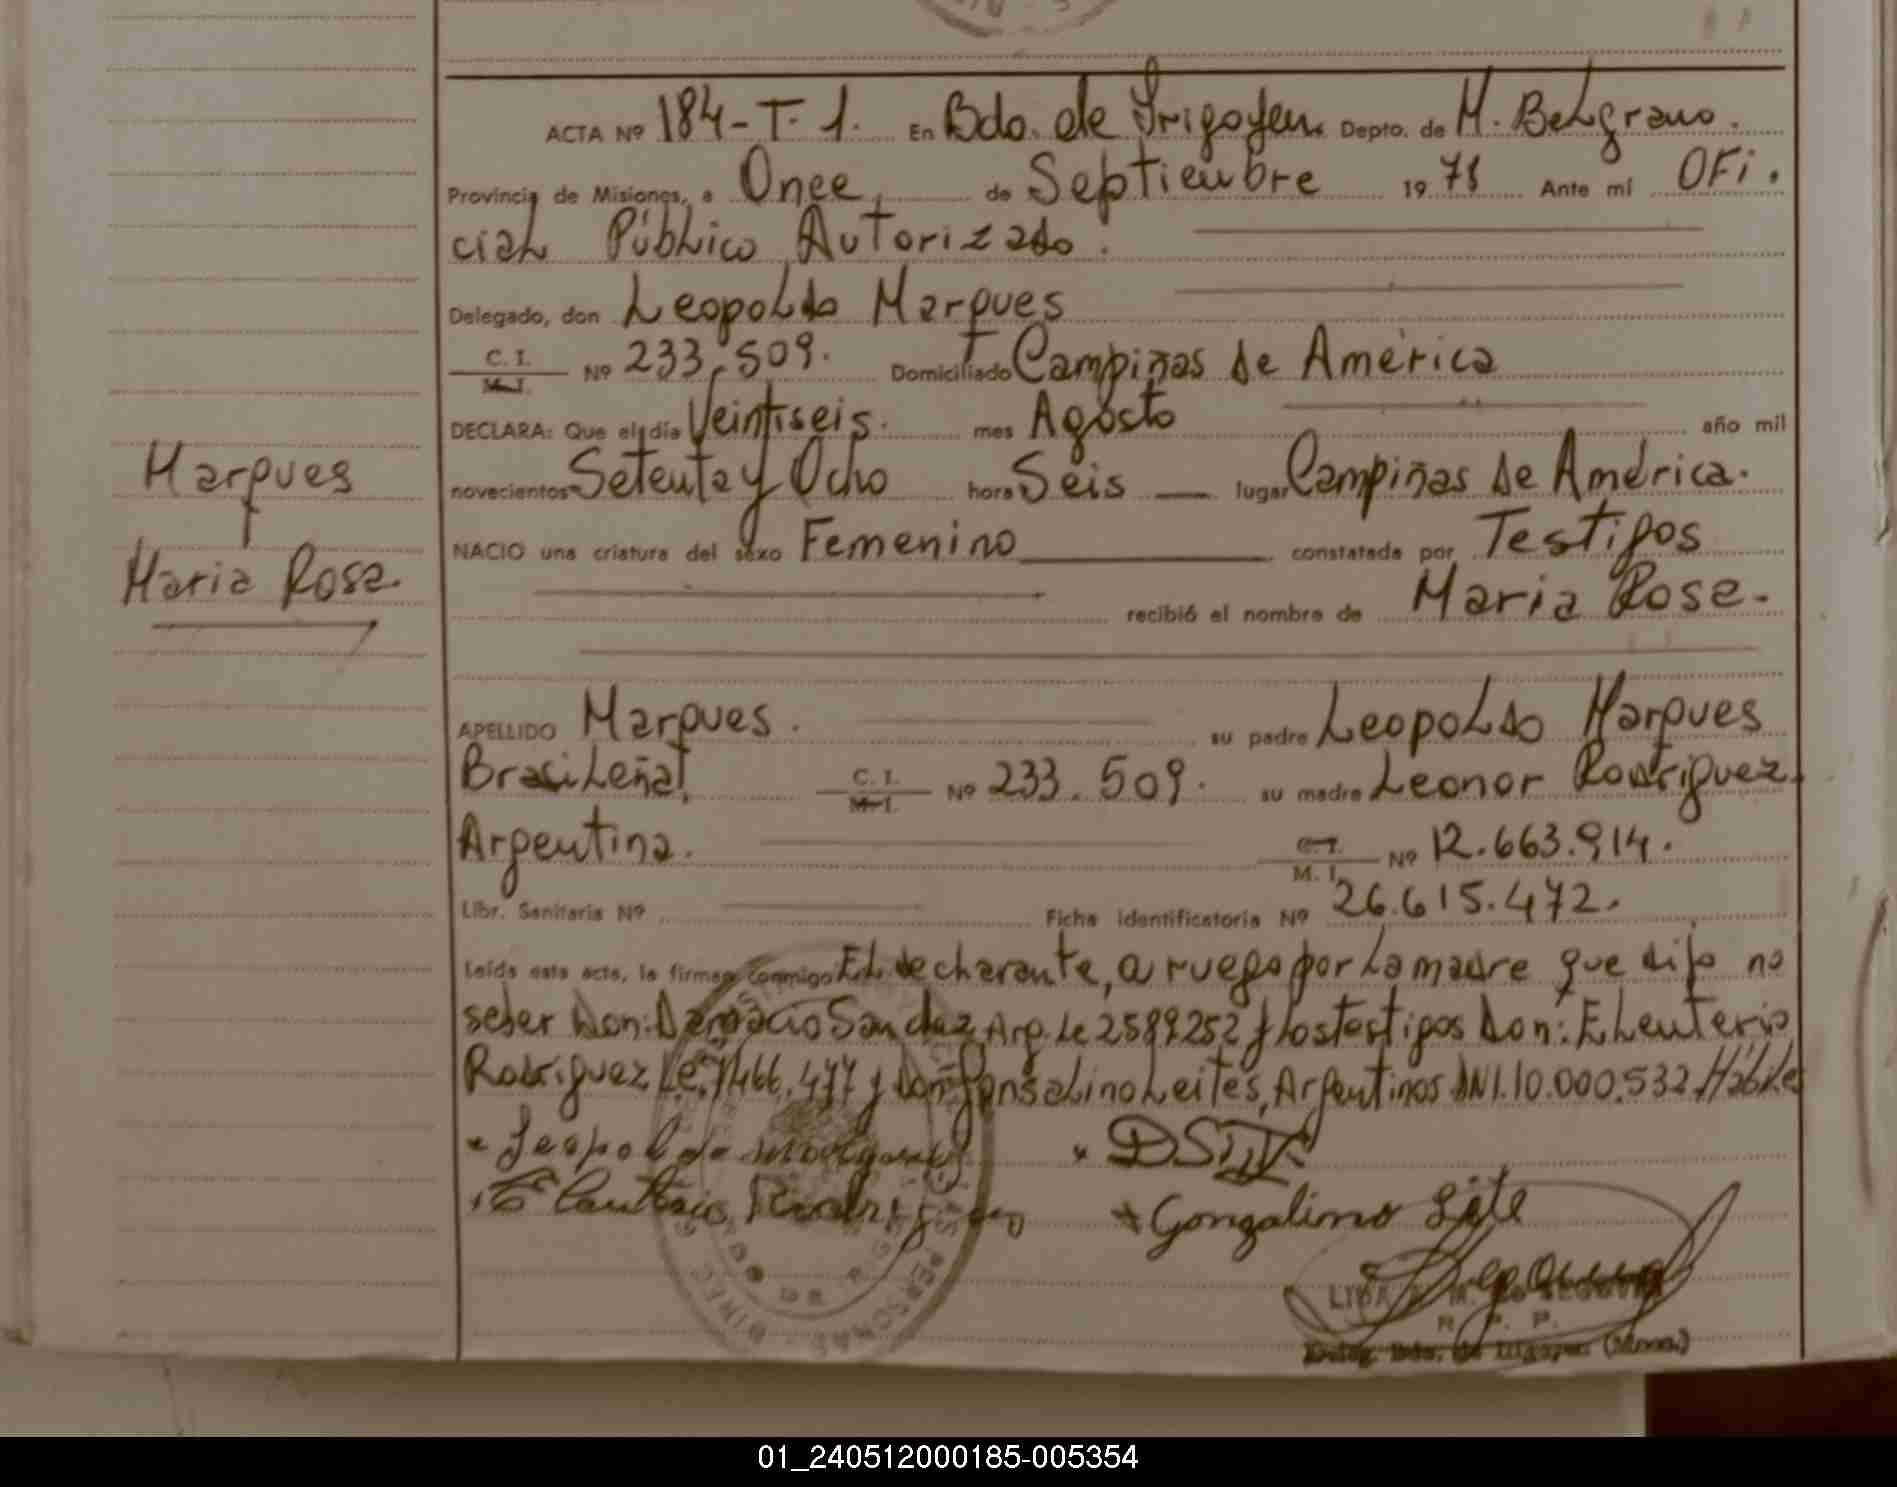 ACTA Nº 184-T-1. En Bdo. de Irigoyen. Depto. de M. Belgrano.
Provincia de Misiones, a Once, de Septiembre 1978 Ante mí Ofi.
cial Público Autorizado.
Delegado, don Leopoldo Marques
C. I. M. I. Nº 233.509. Domiciliado Campiñas de América
DECLARA: Que el día Veintiseis. mes Agosto año mil
novecientos Setenta y Ocho hora Seis lugar Campiñas de América.
Marques
NACIO una criatura del sexo Femenino constatada por Testigos
Maria Rosa
recibió el nombre de Maria Rosa.
APELLIDO Marques. su padre Leopoldo Marques
Brasileña C. I. M. I. Nº 233.509. su madre Leonor Rodriguez
Argentina. C. I. M. I. Nº 12.663.914.
Libr. Sanitaria Nº Ficha identificatoria Nº 26.615.472.
Leída esta acta, la firman conmigo El declarante, a ruego por la madre que dijo no
saber Don: Sanchez Arg. Le 2589252 y los testigos Don: Eleuterio
Rodriguez Le. 7466.477 y Don Leites, Argentinos DNI. 10.000.532 Hábiles
Leopoldo
Gonzalino Leite
R. P. P.
Deleg. Bdo. de Irigoyen (Mnes.)
01_240512000185-005354